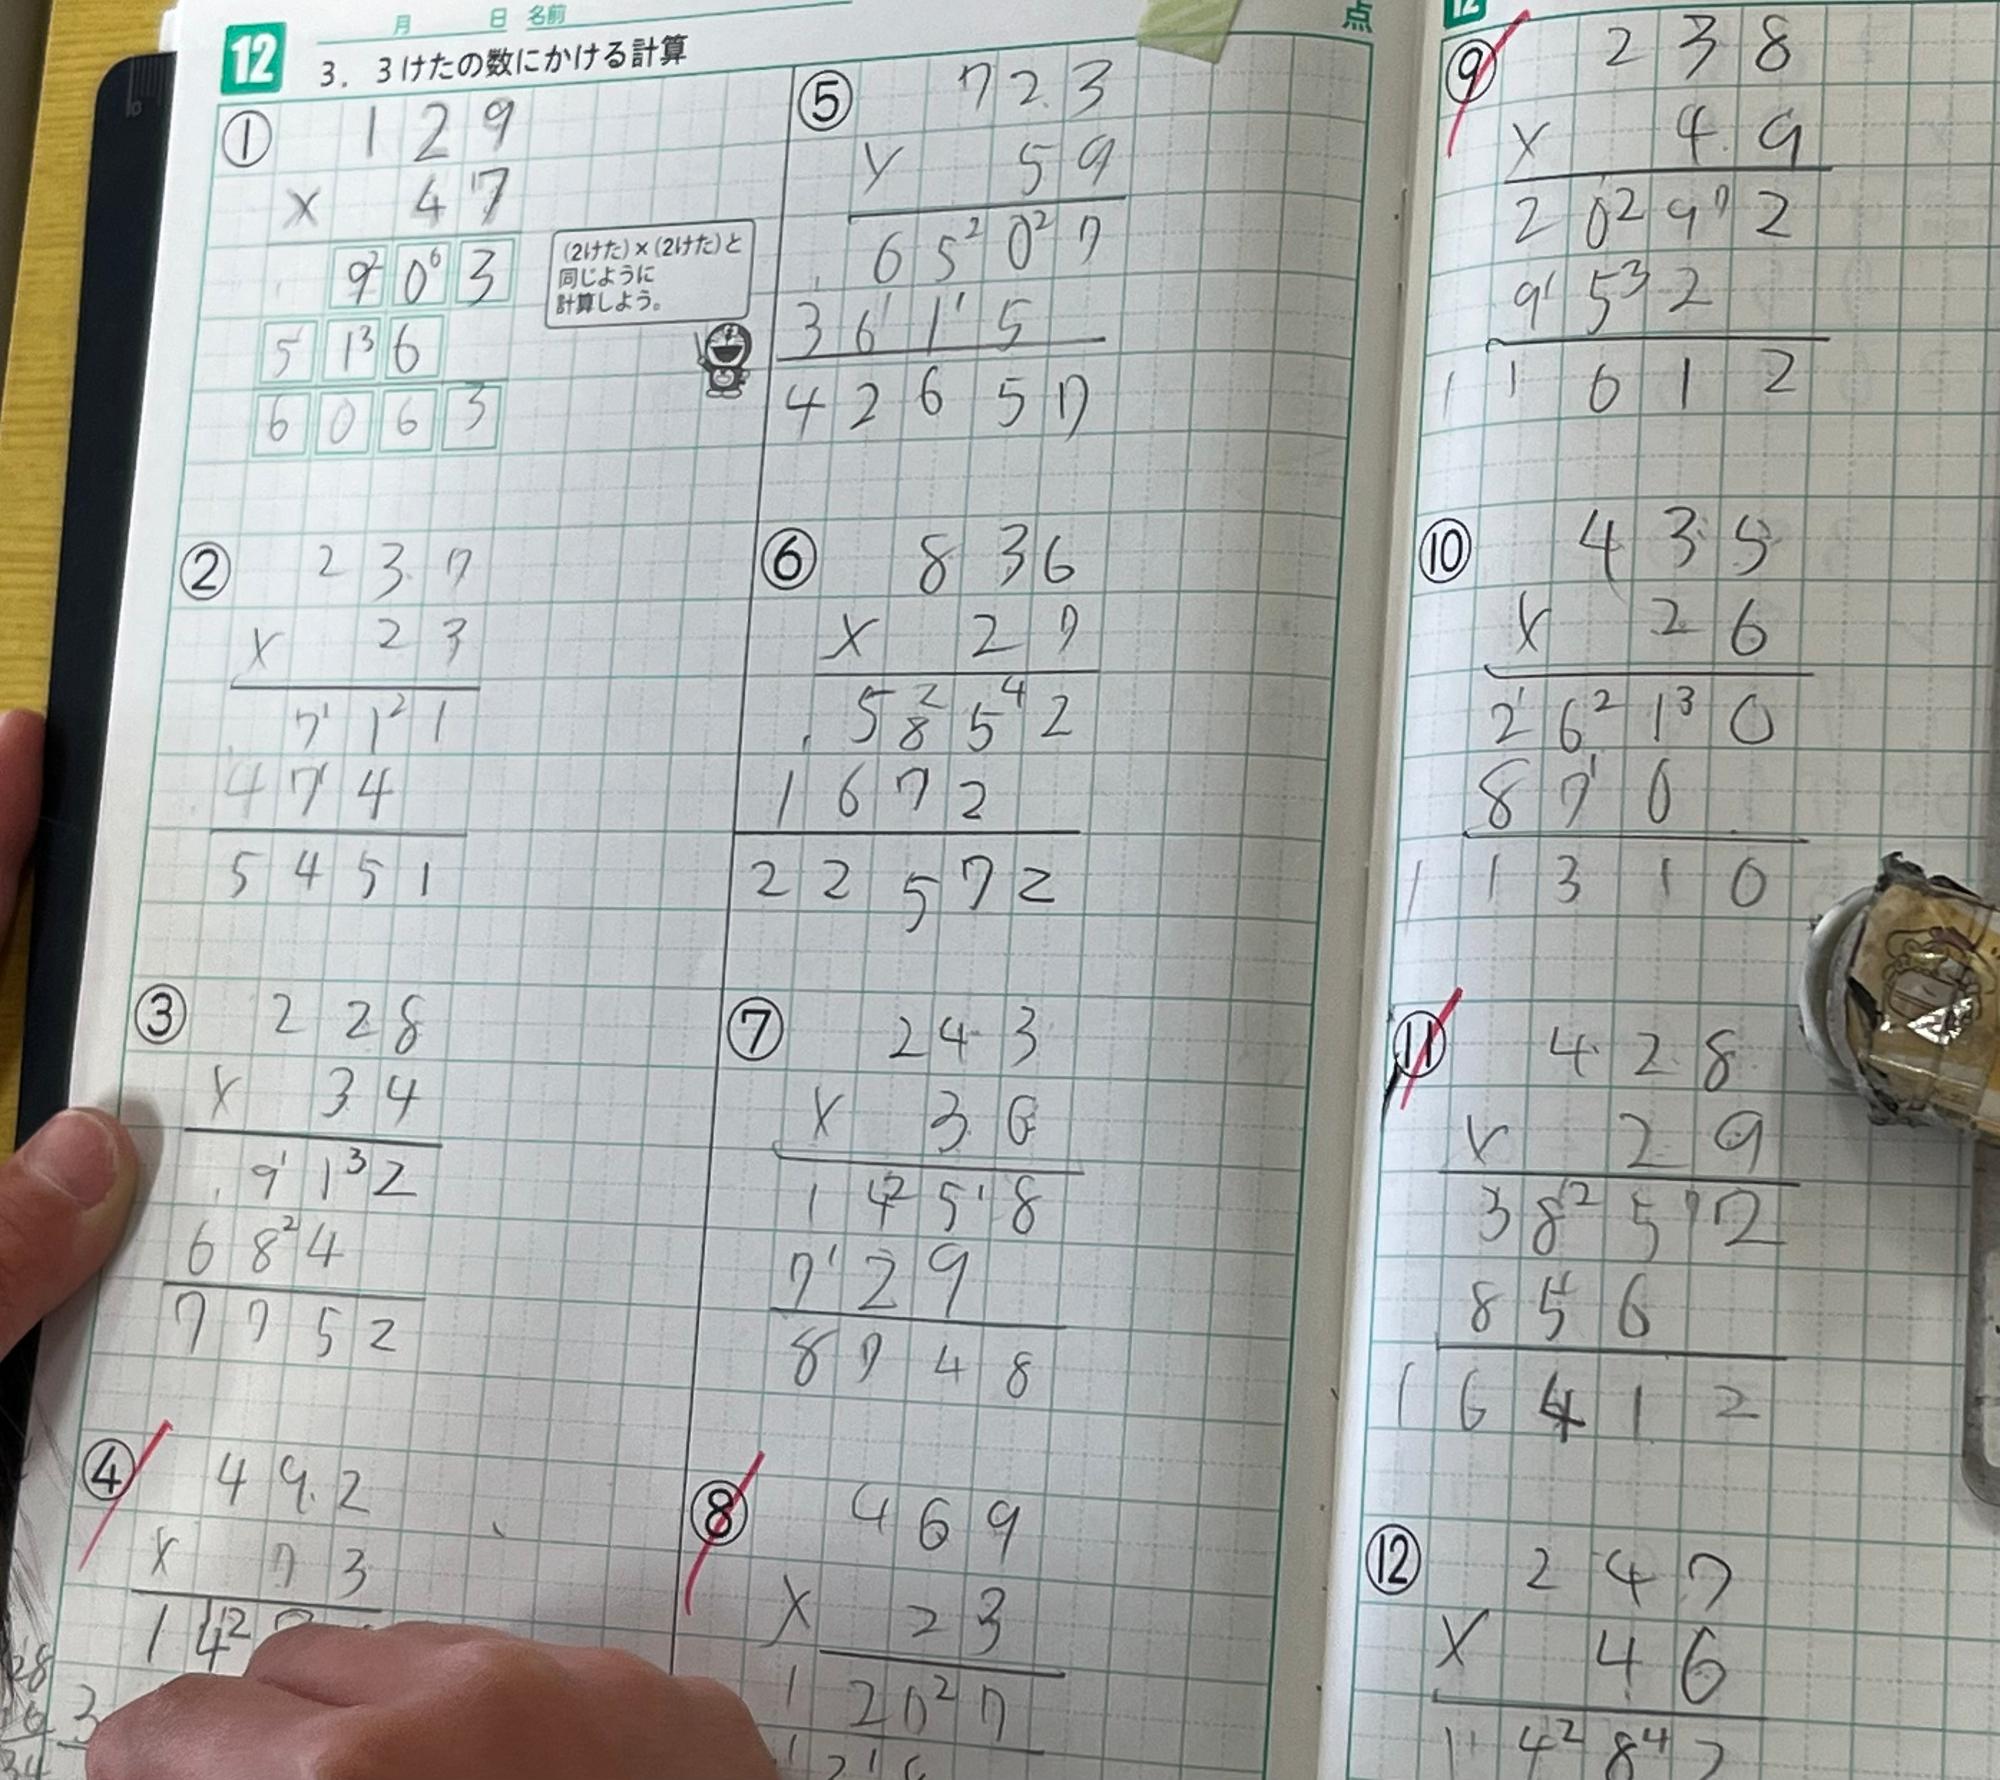 12 月 日 名前 点
3. 3けたの数にかける計算
① 129
× 47
9²0⁶3
51³6
6063
(2けた)×(2けた)と
同じように
計算しよう。
② 237
× 23
7¹1²1
474
5451
③ 228
× 34
9¹1³2
68²4
7752
④ 492
× 73
14²
⑤ 723
× 59
65²0²7
3615
42657
⑥ 836
× 27
58²5⁴2
1672
22572
⑦ 243
× 36
14²5¹8
7¹29
8748
⑧ 469
× 23
1
20²7
12
⑨ 238
× 49
20²9⁷2
9¹5³2
11012
⑩ 435
× 26
2¹6²1³0
87¹0
11310
⑪ 428
× 29
38²5⁷2
856
16412
⑫ 247
× 46
14²8⁴2